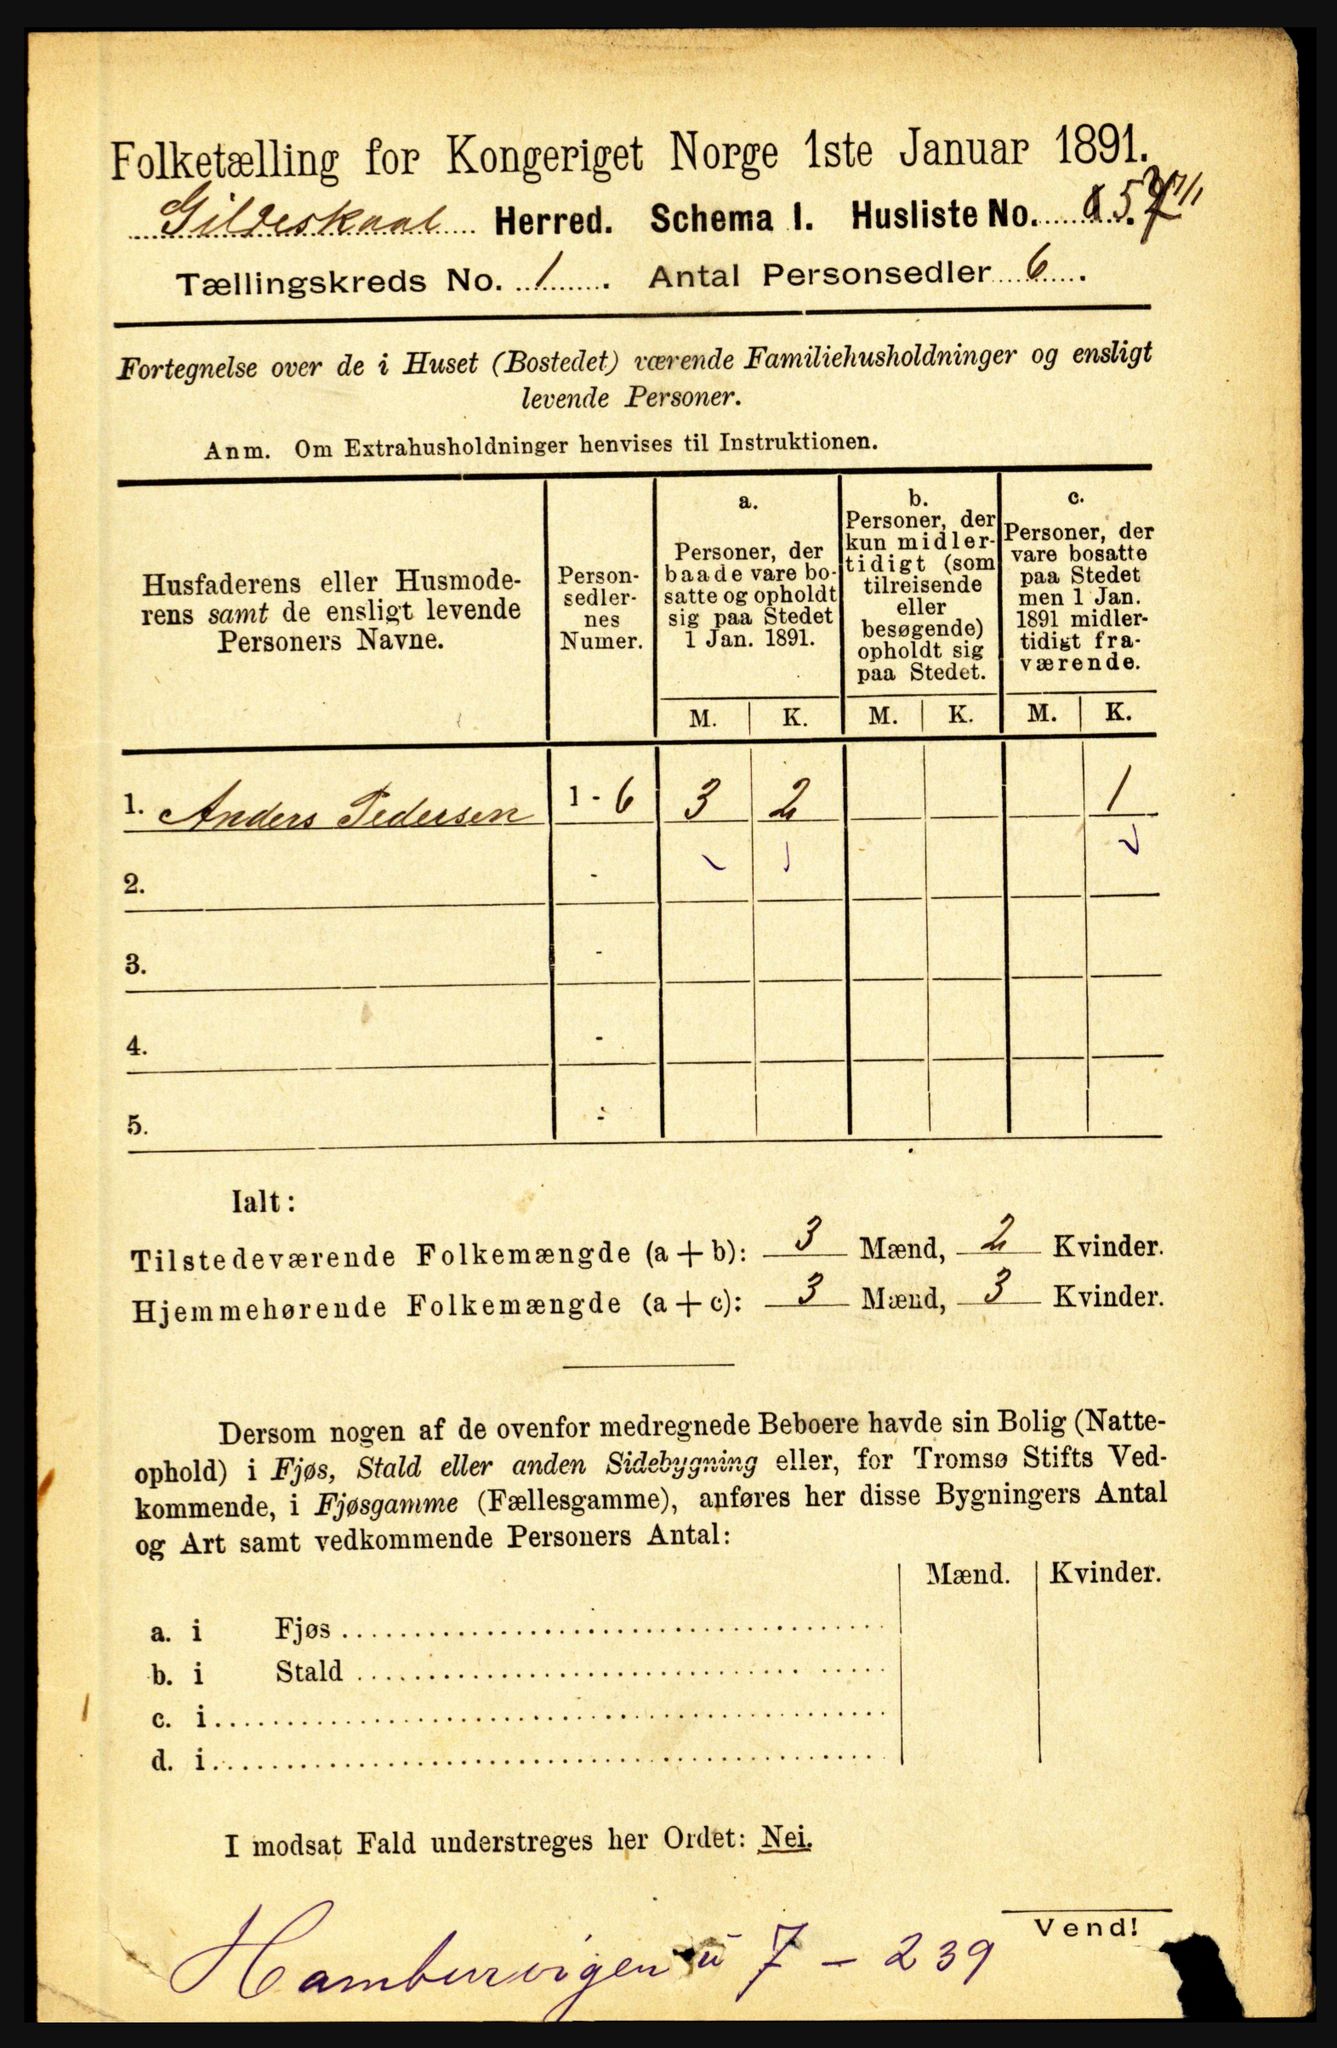 Folketælling for Kongeriget Norge 1ste Januar 1891.
Gildeskaal Herred. Schema 1. Husliste No.
Tællingskreds No. 1. Antal Personsedler 6.
Fortegnelse over de i Huset (Bostedet) værende Familiehusholdninger og ensligt
levende Personer.
Anm. Om Extrahusholdninger henvises til Instruktionen.
Husfaderens eller Husmode-
rens samt de ensligt levende
Personers Navne.
Person-
sedler-
nes
Numer.
a.
Personer, der
baade vare bo-
satte og opholdt
sig paa Stedet
1 Jan. 1891.
b.
Personer, der
kun midler-
tidigt (som
tilreisende
eller
besøgende)
opholdt sig
paa Stedet.
c.
Personer, der
vare bosatte
paa Stedet
men 1 Jan.
1891 midler-
tidigt fra-
værende.
M. K. M. K. M. K.
1. Anders Pedersen 1 - 6 3 2 1
2. -
3. -
4. -
5. -
Ialt:
Tilstedeværende Folkemængde (a + b): 3 Mænd, 2 Kvinder.
Hjemmehørende Folkemængde (a + c): 3 Mænd, 3 Kvinder.
Dersom nogen af de ovenfor medregnede Beboere havde sin Bolig (Natte-
ophold) i Fjøs, Stald eller anden Sidebygning eller, for Tromsø Stifts Ved-
kommende, i Fjøsgamme (Fællesgamme), anføres her disse Bygningers Antal
og Art samt vedkommende Personers Antal:
Mænd. Kvinder.
a. i Fjøs
b. i Stald
c. i
d. i
I modsat Fald understreges her Ordet: Nei.
Vend!
Hamburvigen u 7 - 239